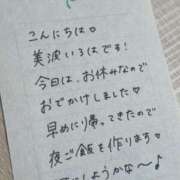 こんにちは♡
美波いろはです!
今日は、お休みなので
おでかけしました♡
早めに帰ってきたので
夜ご飯を作ります♡
しようかな〜♪